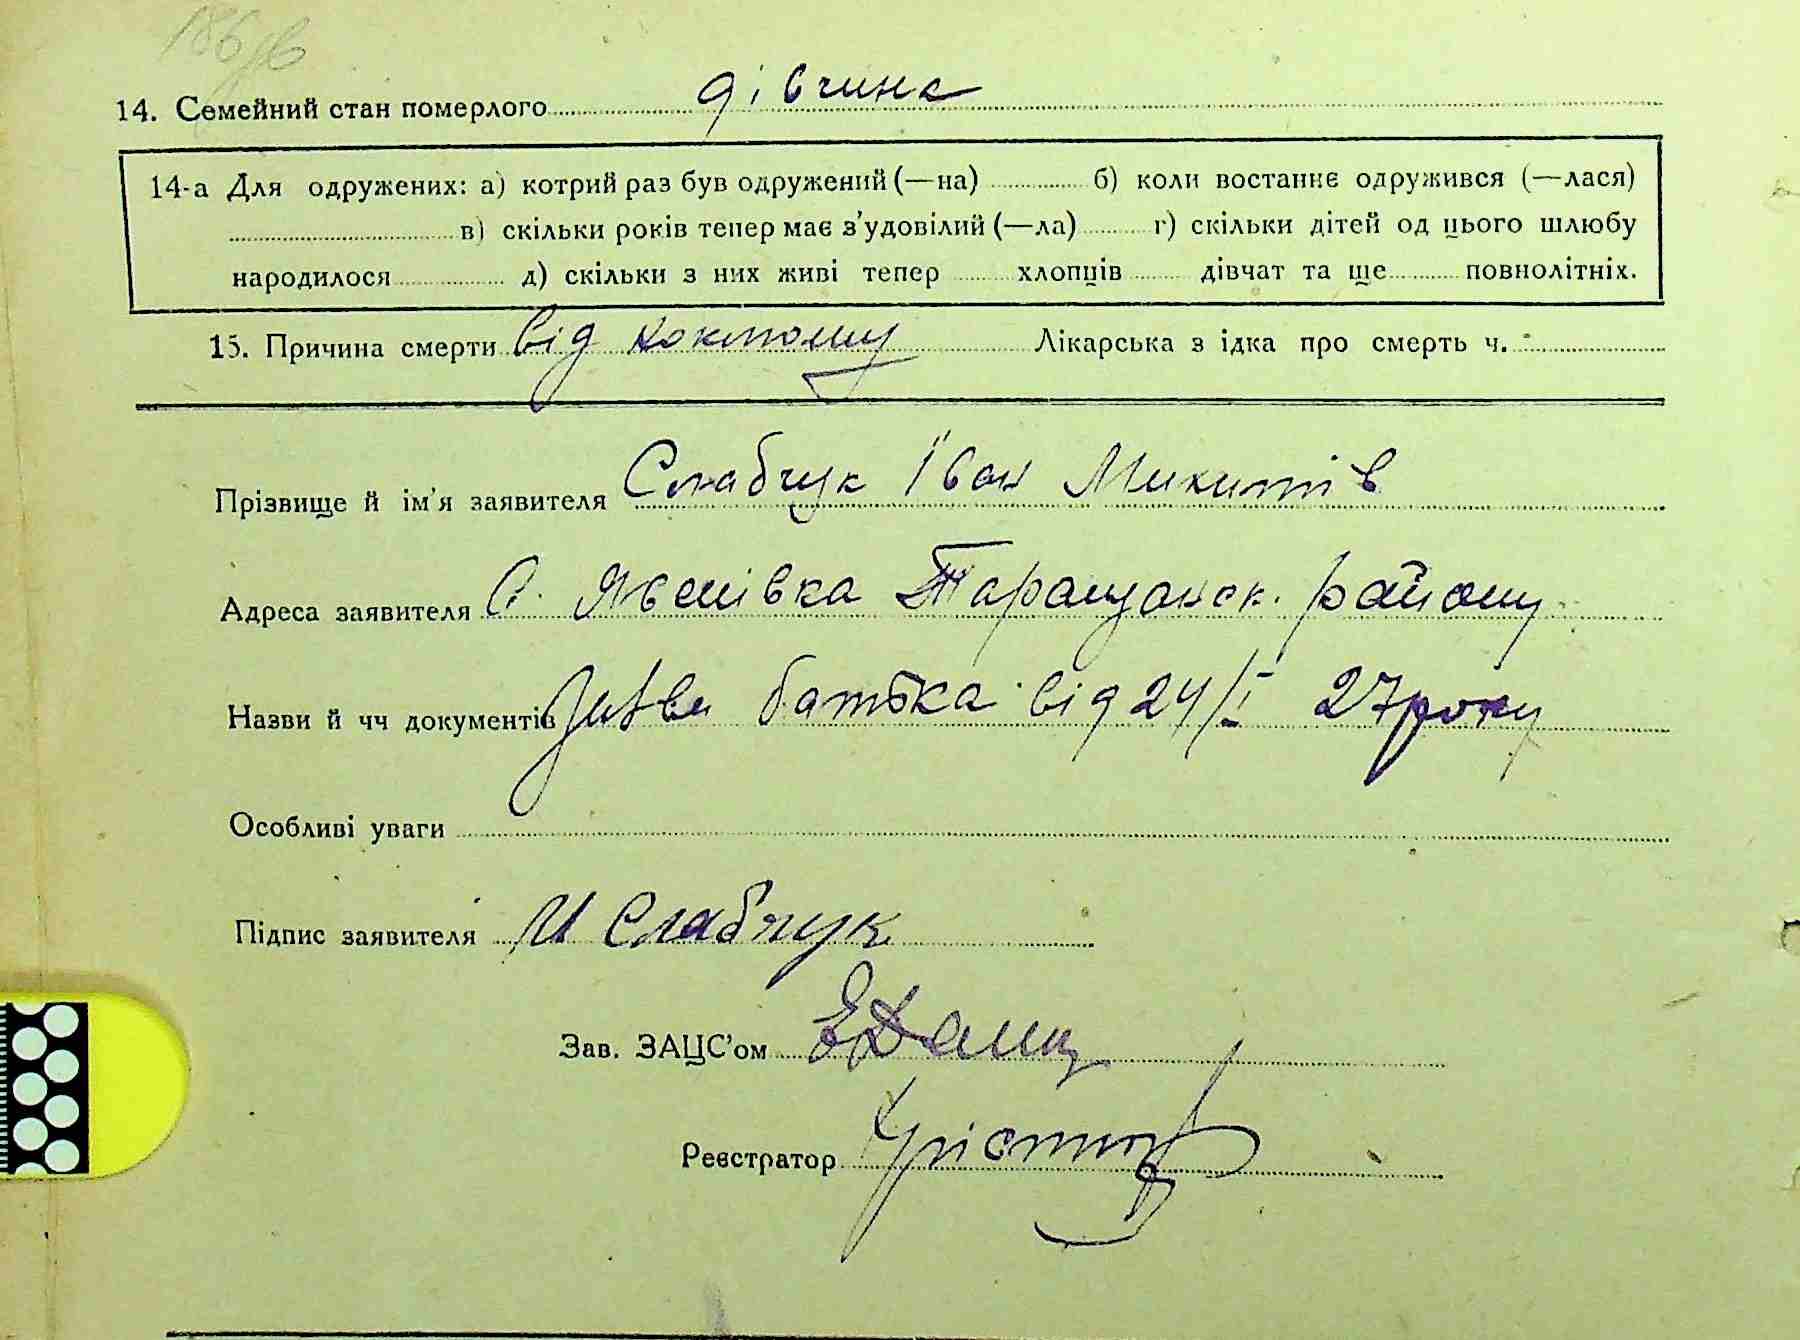 186
14. Семейний стан померлого дівчина
14-а Для одружених: а) котрий раз був одружений (—на) б) коли востаннє одружився (—лася)
в) скільки років тепер має з'удовілий (—ла) г) скільки дітей од цього шлюбу
народилося д) скільки з них живі тепер хлопців дівчат та ще повнолітніх.
15. Причина смерти від коклюшу Лікарська з ідка про смерть ч.
Прізвище й ім'я заявителя Слабчук Іван Микитів
Адреса заявителя С. Явснівка Таращанск. району
Назви й чч документів Заява батька від 24/I 27 року
Особливі уваги
Підпис заявителя И Слабчук
Зав. ЗАЦС'ом
Реєстратор